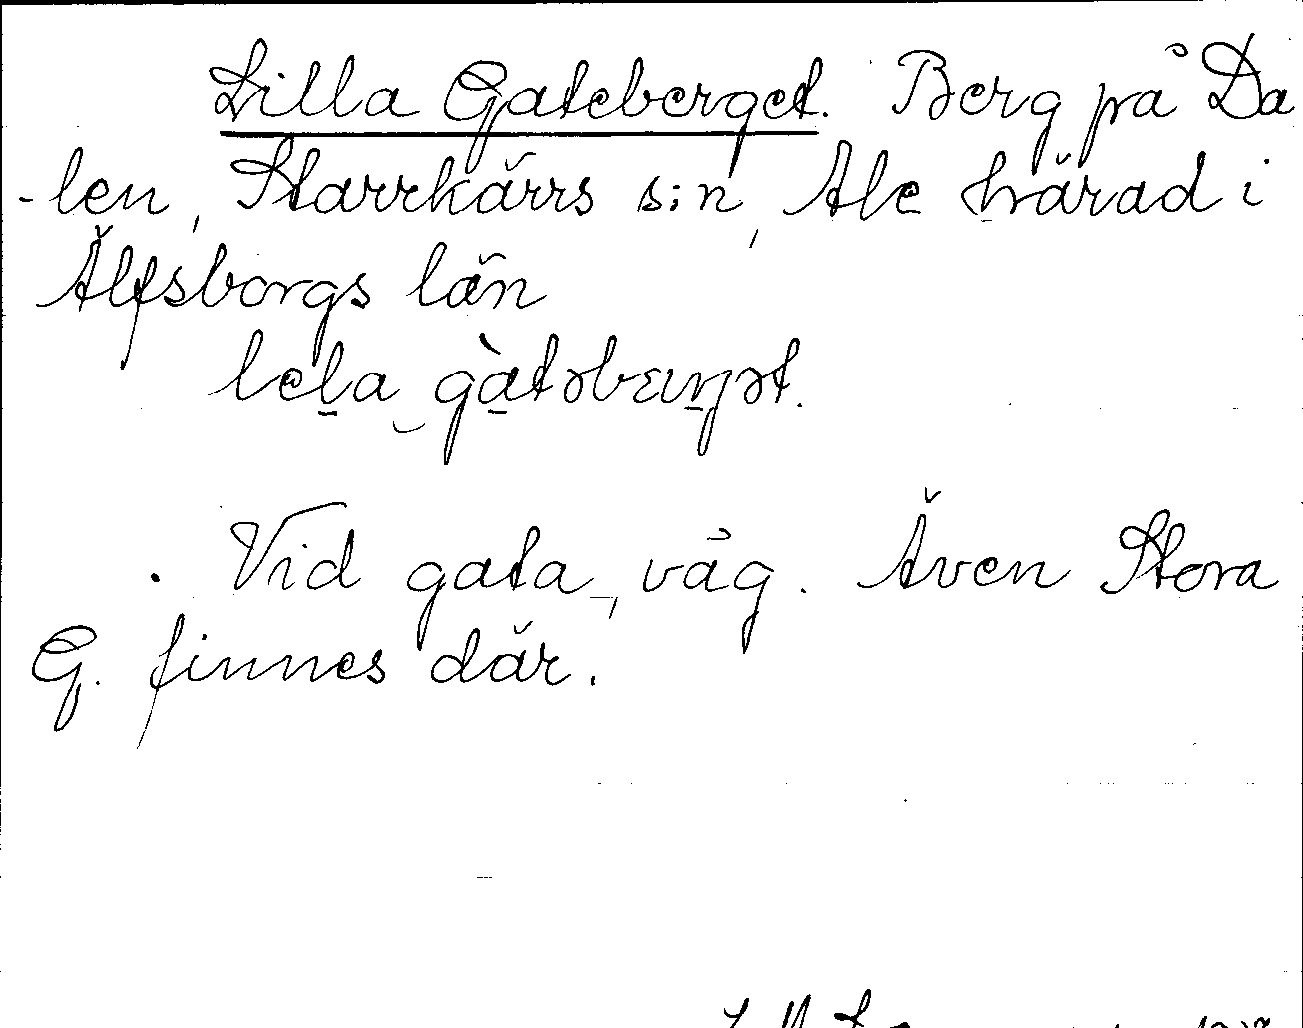 Lilla Gateberget. Berg på Da
-len, Starrkärrs s:n, Ale härad i
Älfsborgs län
lela gàtəbæŋət.
Vid gata, väg. Även Stora
G. finnes där.